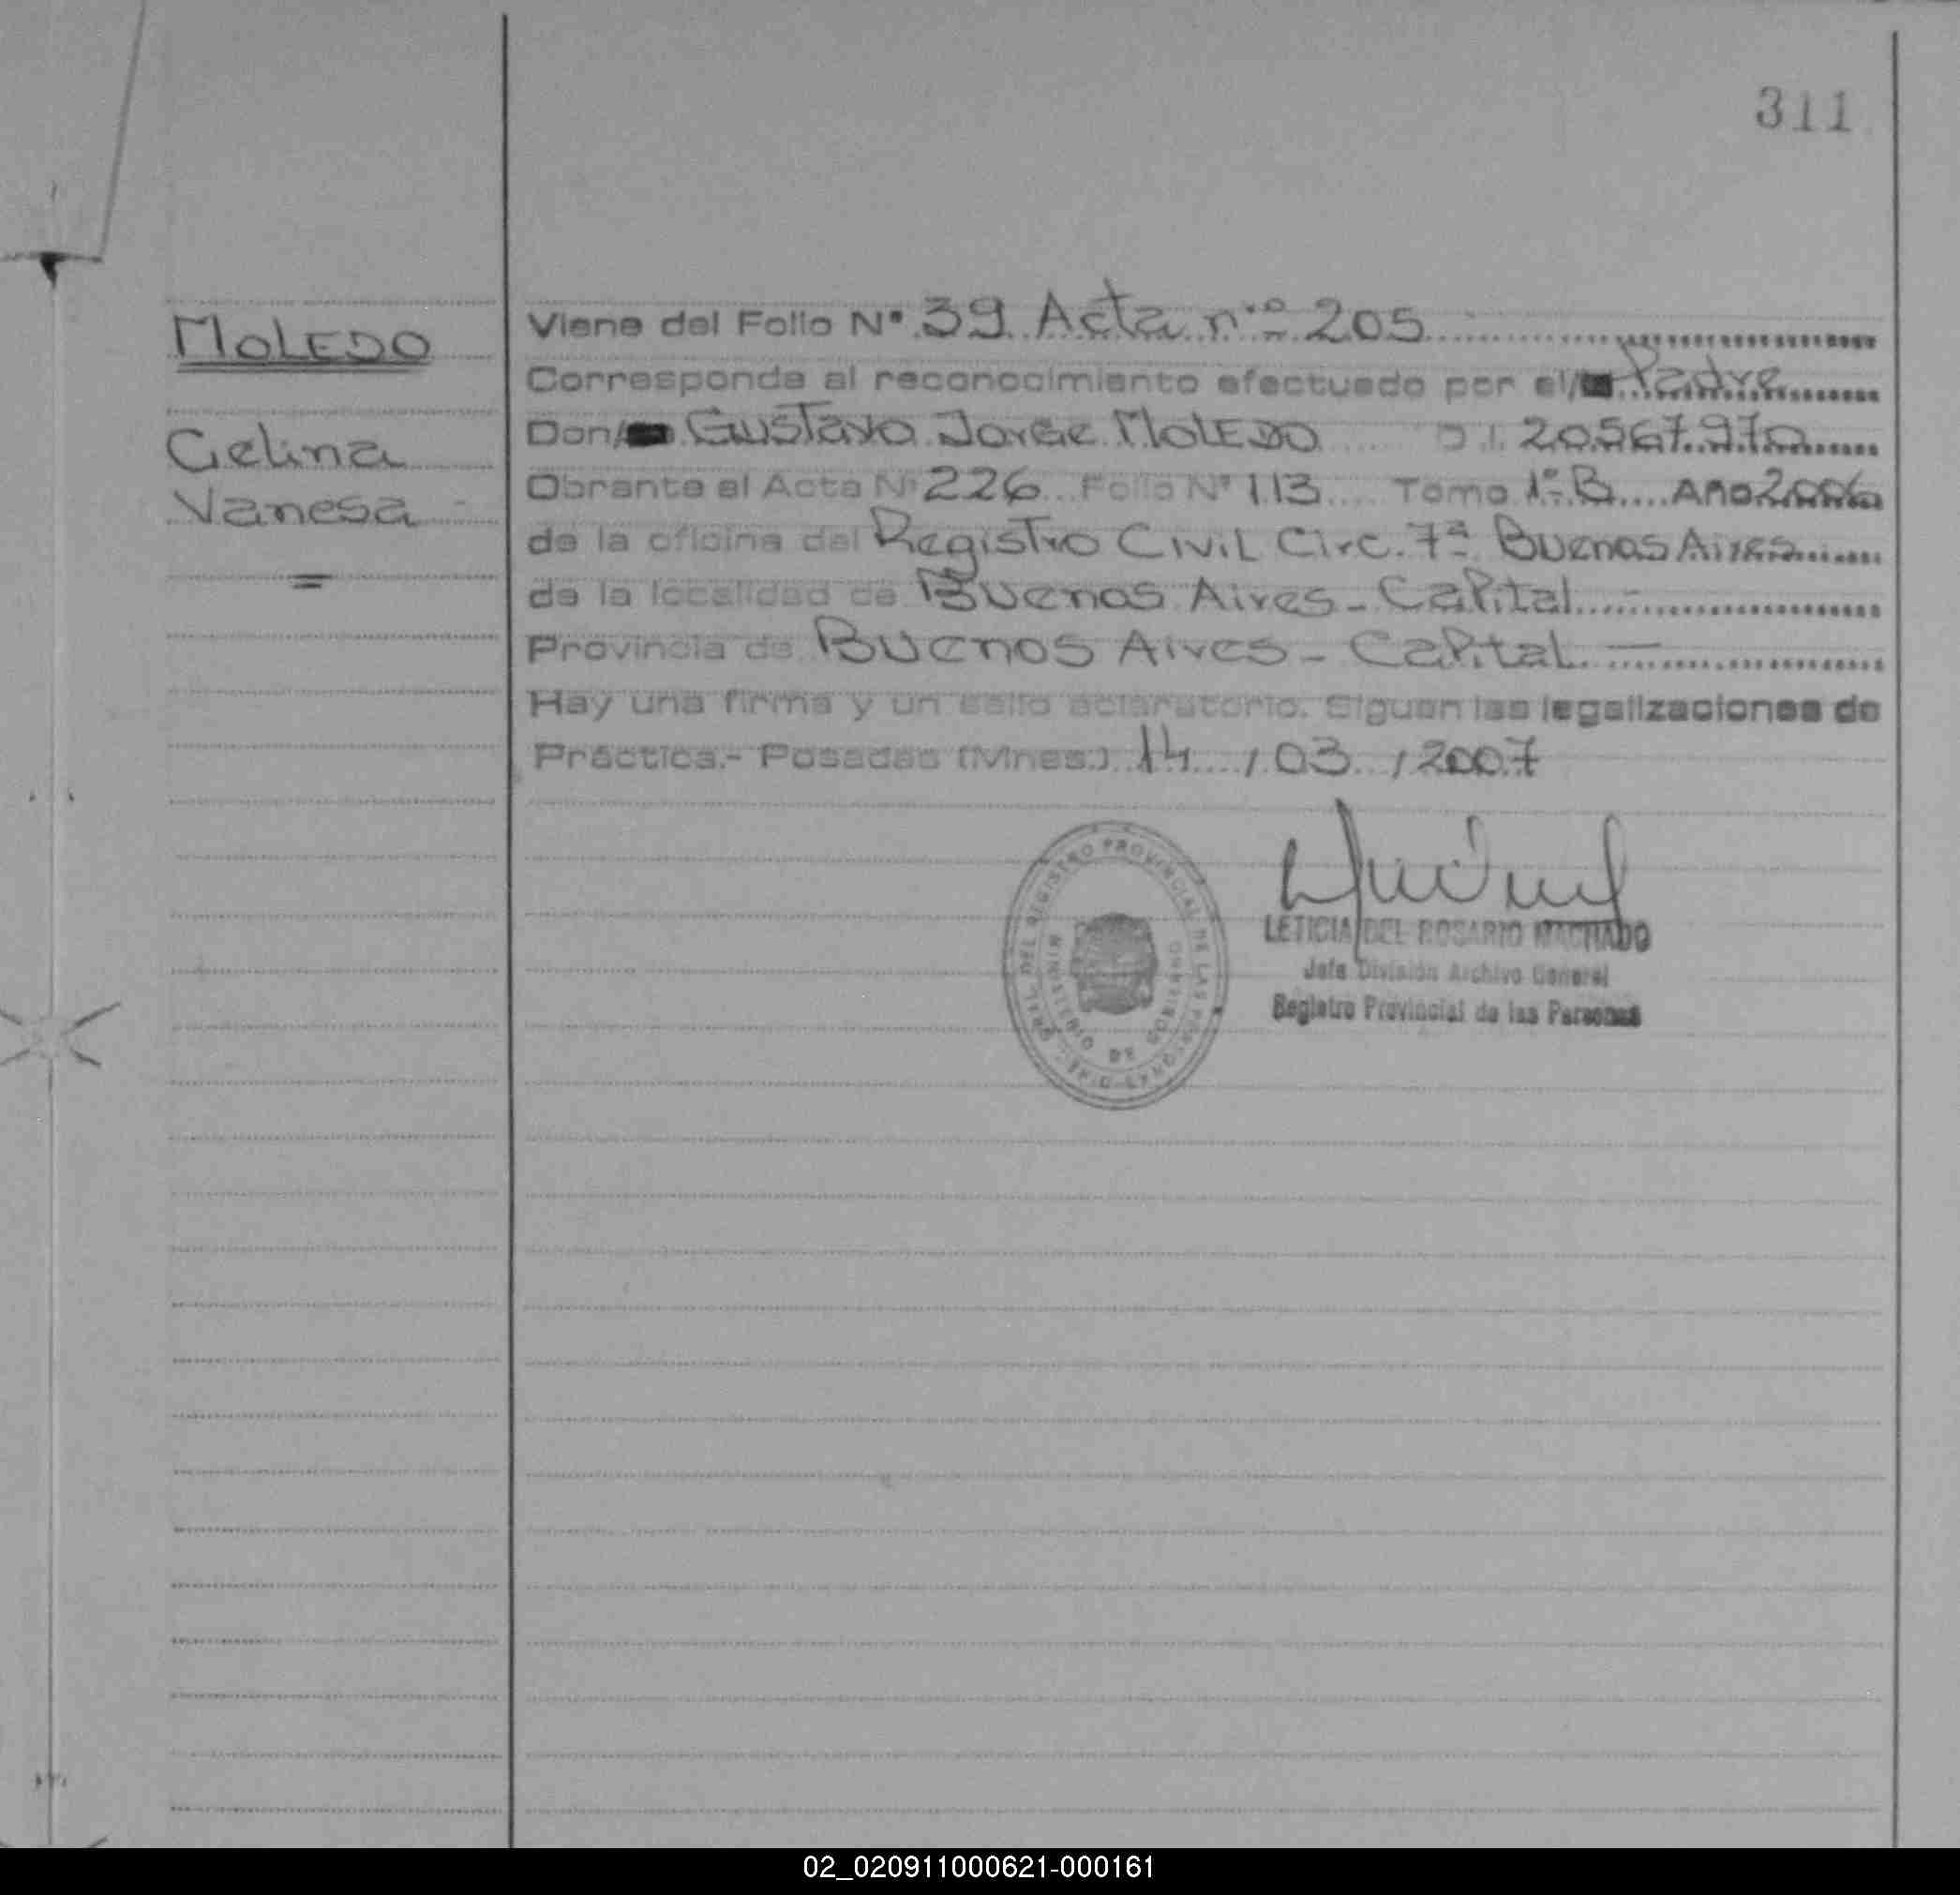 311
MOLEDO
Celina
Vanesa
=
Viene del Folio N° 39 Acta nº 205
Corresponde al reconocimiento efectuado por el/ Padre
Don/ Gustavo Jorge MOLEDO D.I. 20.567.970
Obrante al Acta N° 226 Folio N° 113 Tomo 1º B Año 2006
de la oficina del Registro Civil Circ. 7ª Buenos Aires
de la localidad de Buenos Aires - Capital
Provincia de Buenos Aires - Capital. -
Hay una firma y un sello aclaratorio. Siguen las legalizaciones de
Práctica.- Posadas (Mnes.) 14 / 03 / 2007
DEL REGISTRO PROVINCIAL DE LAS PERSONAS
MINISTERIO DE GOBIERNO
LETICIA DEL ROSARIO MACHADO
Jefa División Archivo General
Registro Provincial de las Personas
02_020911000621-000161